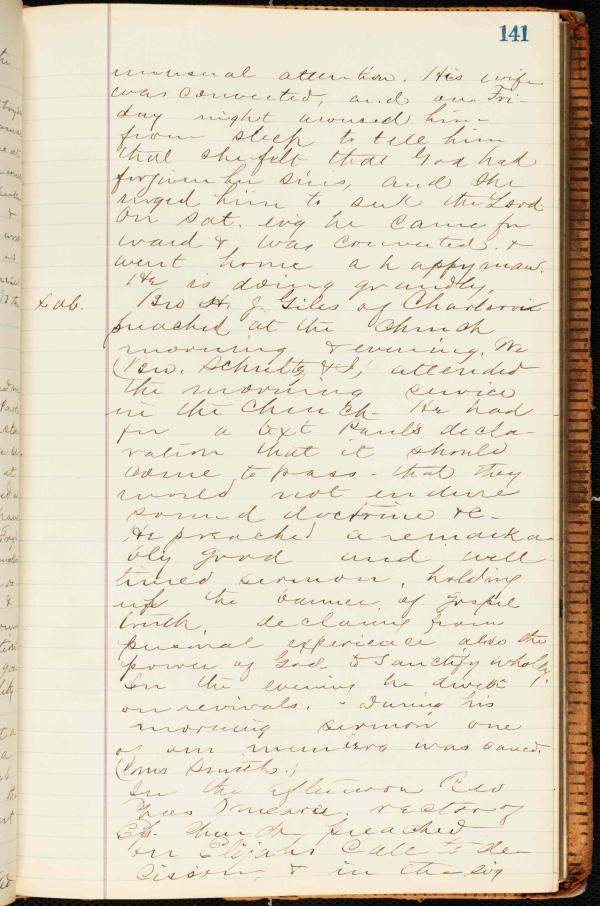 141
unusual attention. His wife
was converted, and one Fri-
day night aroused him
from sleep to tell him
that she felt that God had
forgiven her sins, and she
urged him to seek the Lord
On Sat. ev'g he came for
ward & was converted. &
went home a happy man.
He is doing grandly,
Sab. Bro H. J. Giles of Charleroi
preached at the Church
morning & evening. We
(Bro. Schultz & I,) attended
the morning service
in the Church. He had
for a text Paul's decla-
ration that it should
come to pass - that they
would not endure
sound doctrine &c-
He preached a remarka
bly good and well
timed sermon, holding
up the banner of Gospel
truth, declaring from
personal experience also the
power of God to Sanctify wholly.
In the evening he dwelt
on revivals. - During his
morning sermon one
of our members was saved.
(Smith.)
In the afternoon Rev
rector of
Ep. Church preached
on Elijah's Call to de
cision, & in the ev'g